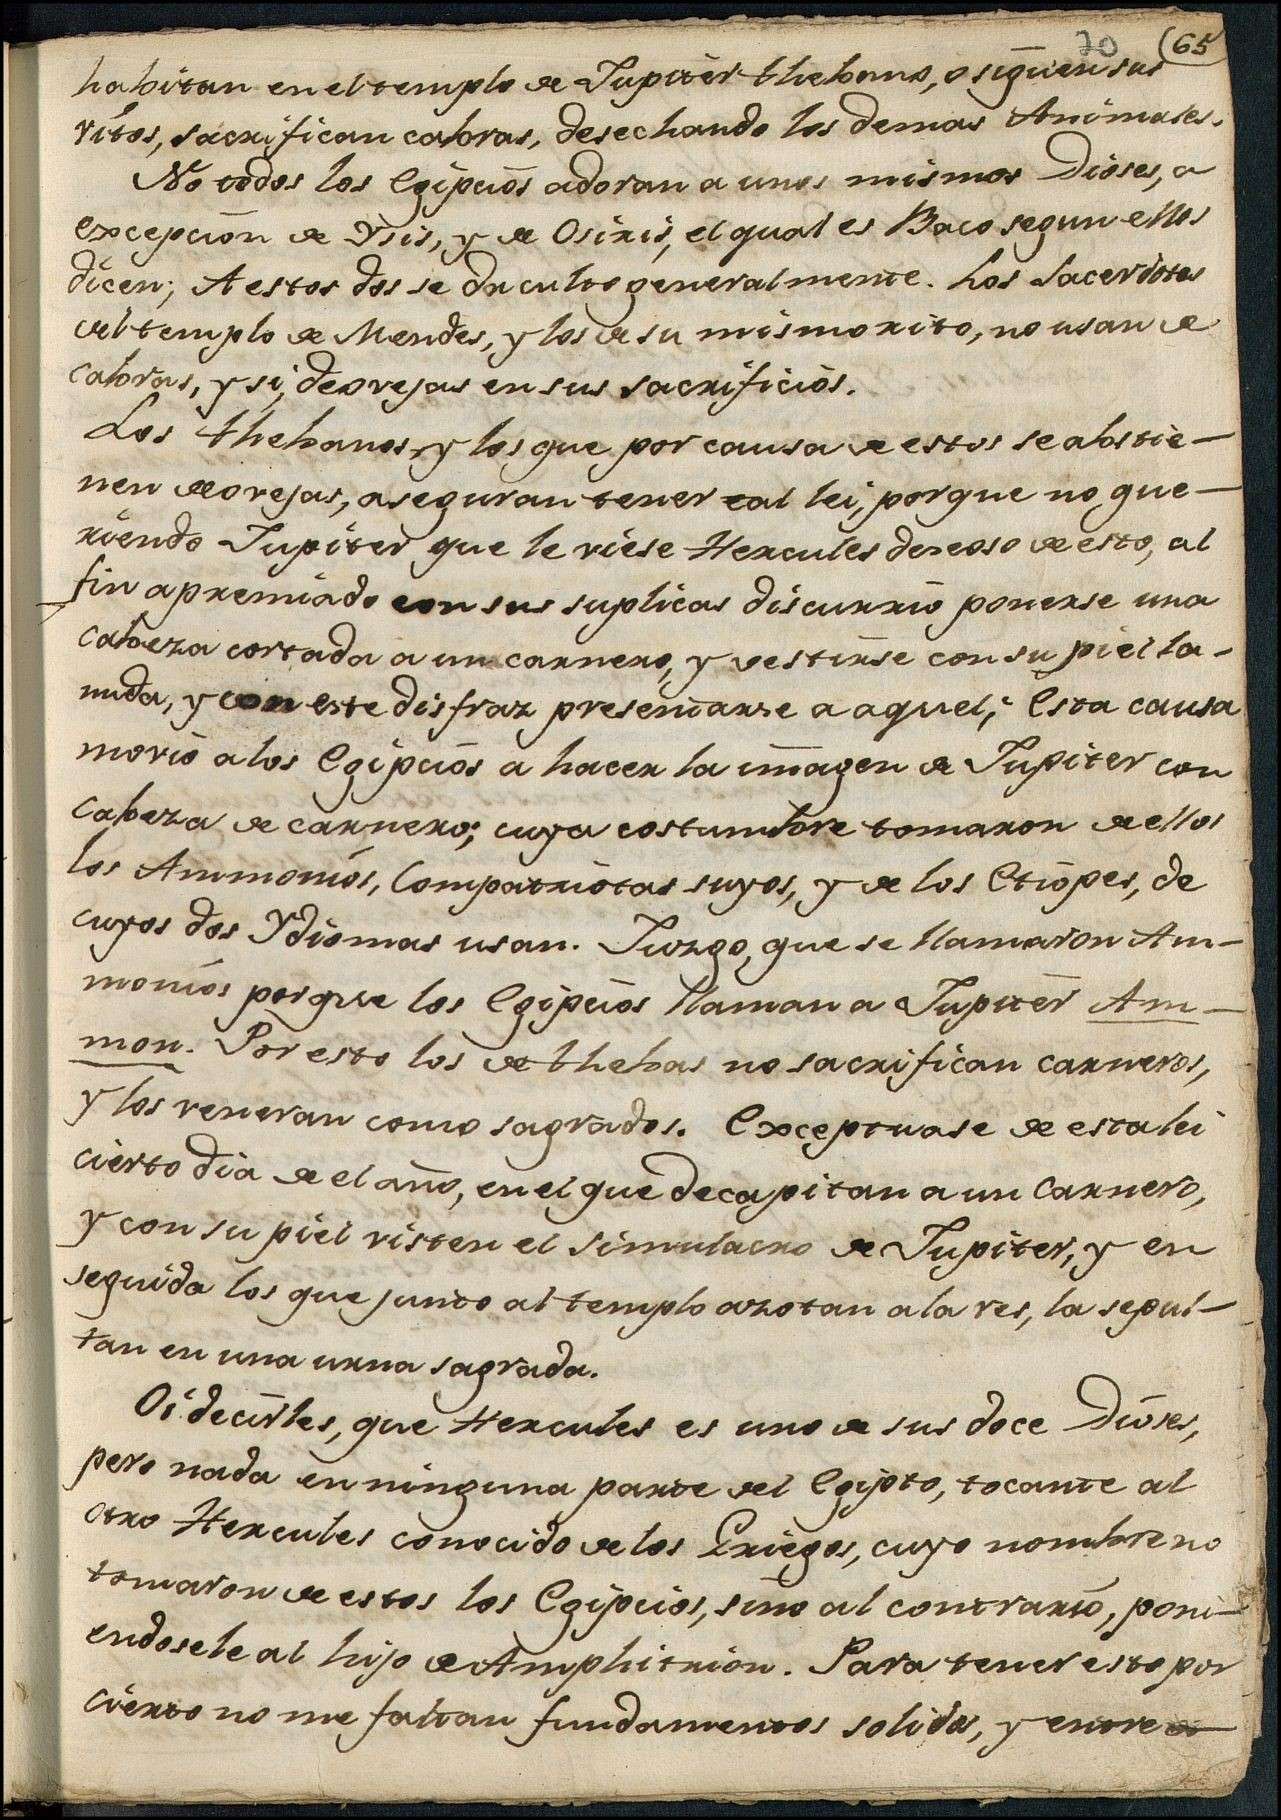 70 (65
habitan en el templo de Jupiter thebano, o siguen sus
ritos, sacrifican cabras, desechando los demas Animales.
No todos los Egipcios adoran a unos mismos Dioses, a
excepcion de Ysis, y de Osiris, el qual es Baco segun ellos
dicen; A estos dos se da culto generalmente. Los Sacerdotes
del templo de Mendes, y los de su mismo rito, no usan de
cabras, y si, de ovejas en sus sacrificios.
Los thebanos, y los que por causa de estos se abstie-
nen de ovejas, aseguran tener tal lei, porque no que-
riendo Jupiter que le viese Hercules deseoso de esto, al
fin apremiado con sus suplicas discurrio ponerse una
cabeza cortada a un carnero, y vestirse con su piel la-
nuda, y con este disfraz presentarse a aquel; Esta causa
movio a los Egipcios a hacer la imagen de Jupiter con
cabeza de carnero; cuya costumbre tomaron de ellos
los Ammonios, Compatriotas suyos, y de los Etiopes, de
cuyos dos Ydiomas usan. Juzgo, que se llamaron Am-
monios porque los Egipcios llaman a Jupiter Am-
mon. Por esto los de thebas no sacrifican carneros,
y los veneran como sagrados. Exceptuase de esta lei
cierto dia de el año, en el que decapitan a un Carnero,
y con su piel visten el simulacro de Jupiter, y en
seguida los que junto al templo azotan a la res, la sepul-
tan en una urna sagrada.
Oi decirles, que Hercules es uno de sus doce Dioses,
pero nada en ninguna parte del Egipto, tocante al
otro Hercules conocido de los Griegos, cuyo nombre no
tomaron de estos los Egipcios, sino al contrario, poni-
endosele al hijo de Amphitrion. Para tener esto por
cierto no me faltan fundamentos solidos, y entre